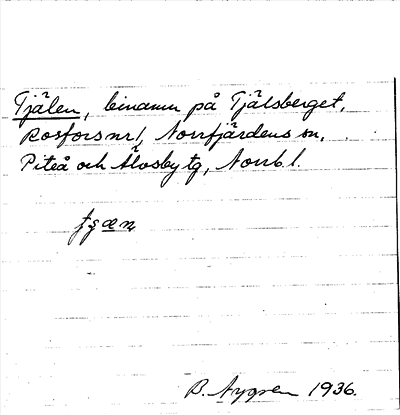 Tjälen, binamn på Tjälsberget,
Rosfors nr 1, Norrfjärdens sn,
Piteå och Älvsby tg, Norrb. l.
B. Nygren 1936.